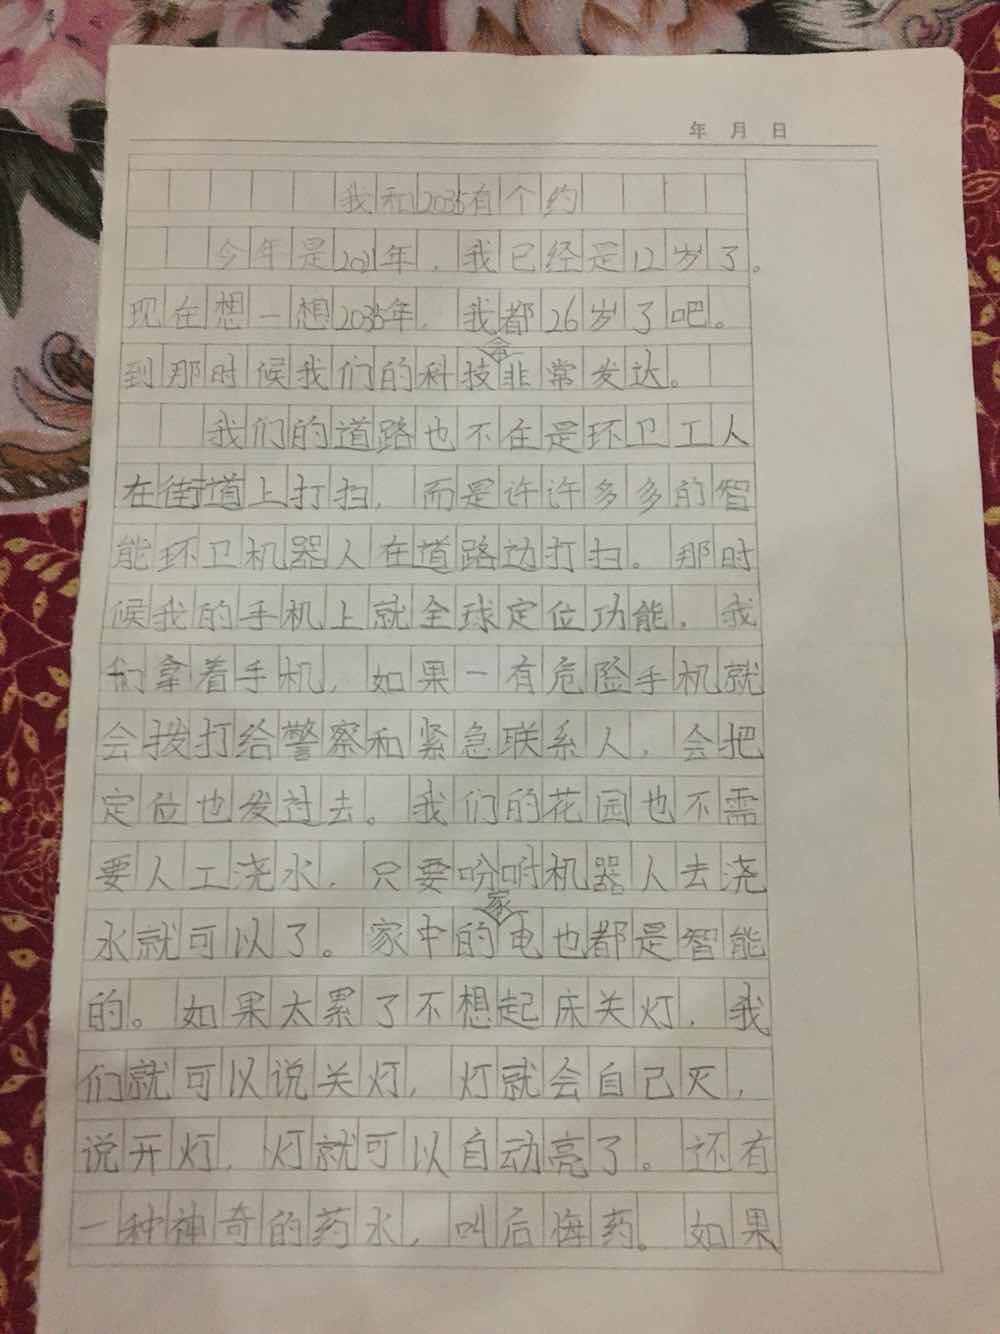 年 月 日
我和2035有个约
今年是2021年，我已经是12岁了。
现在想一想2035年，我都26岁了吧。
到那时候我们的科技会非常发达。
我们的道路也不在是环卫工人
在街道上打扫，而是许许多多的智
能环卫机器人在道路边打扫。那时
候我的手机上就全球定位功能，我
们拿着手机，如果一有危险手机就
会拨打给警察和紧急联系人，会把
定位也发过去。我们的花园也不需
要人工浇水，只要吩咐机器人去浇
水就可以了。家中的家电也都是智能
的。如果太累了不想起床关灯，我
们就可以说关灯，灯就会自己灭，
说开灯，灯就可以自动亮了。还有
一种神奇的药水，叫后悔药。如果